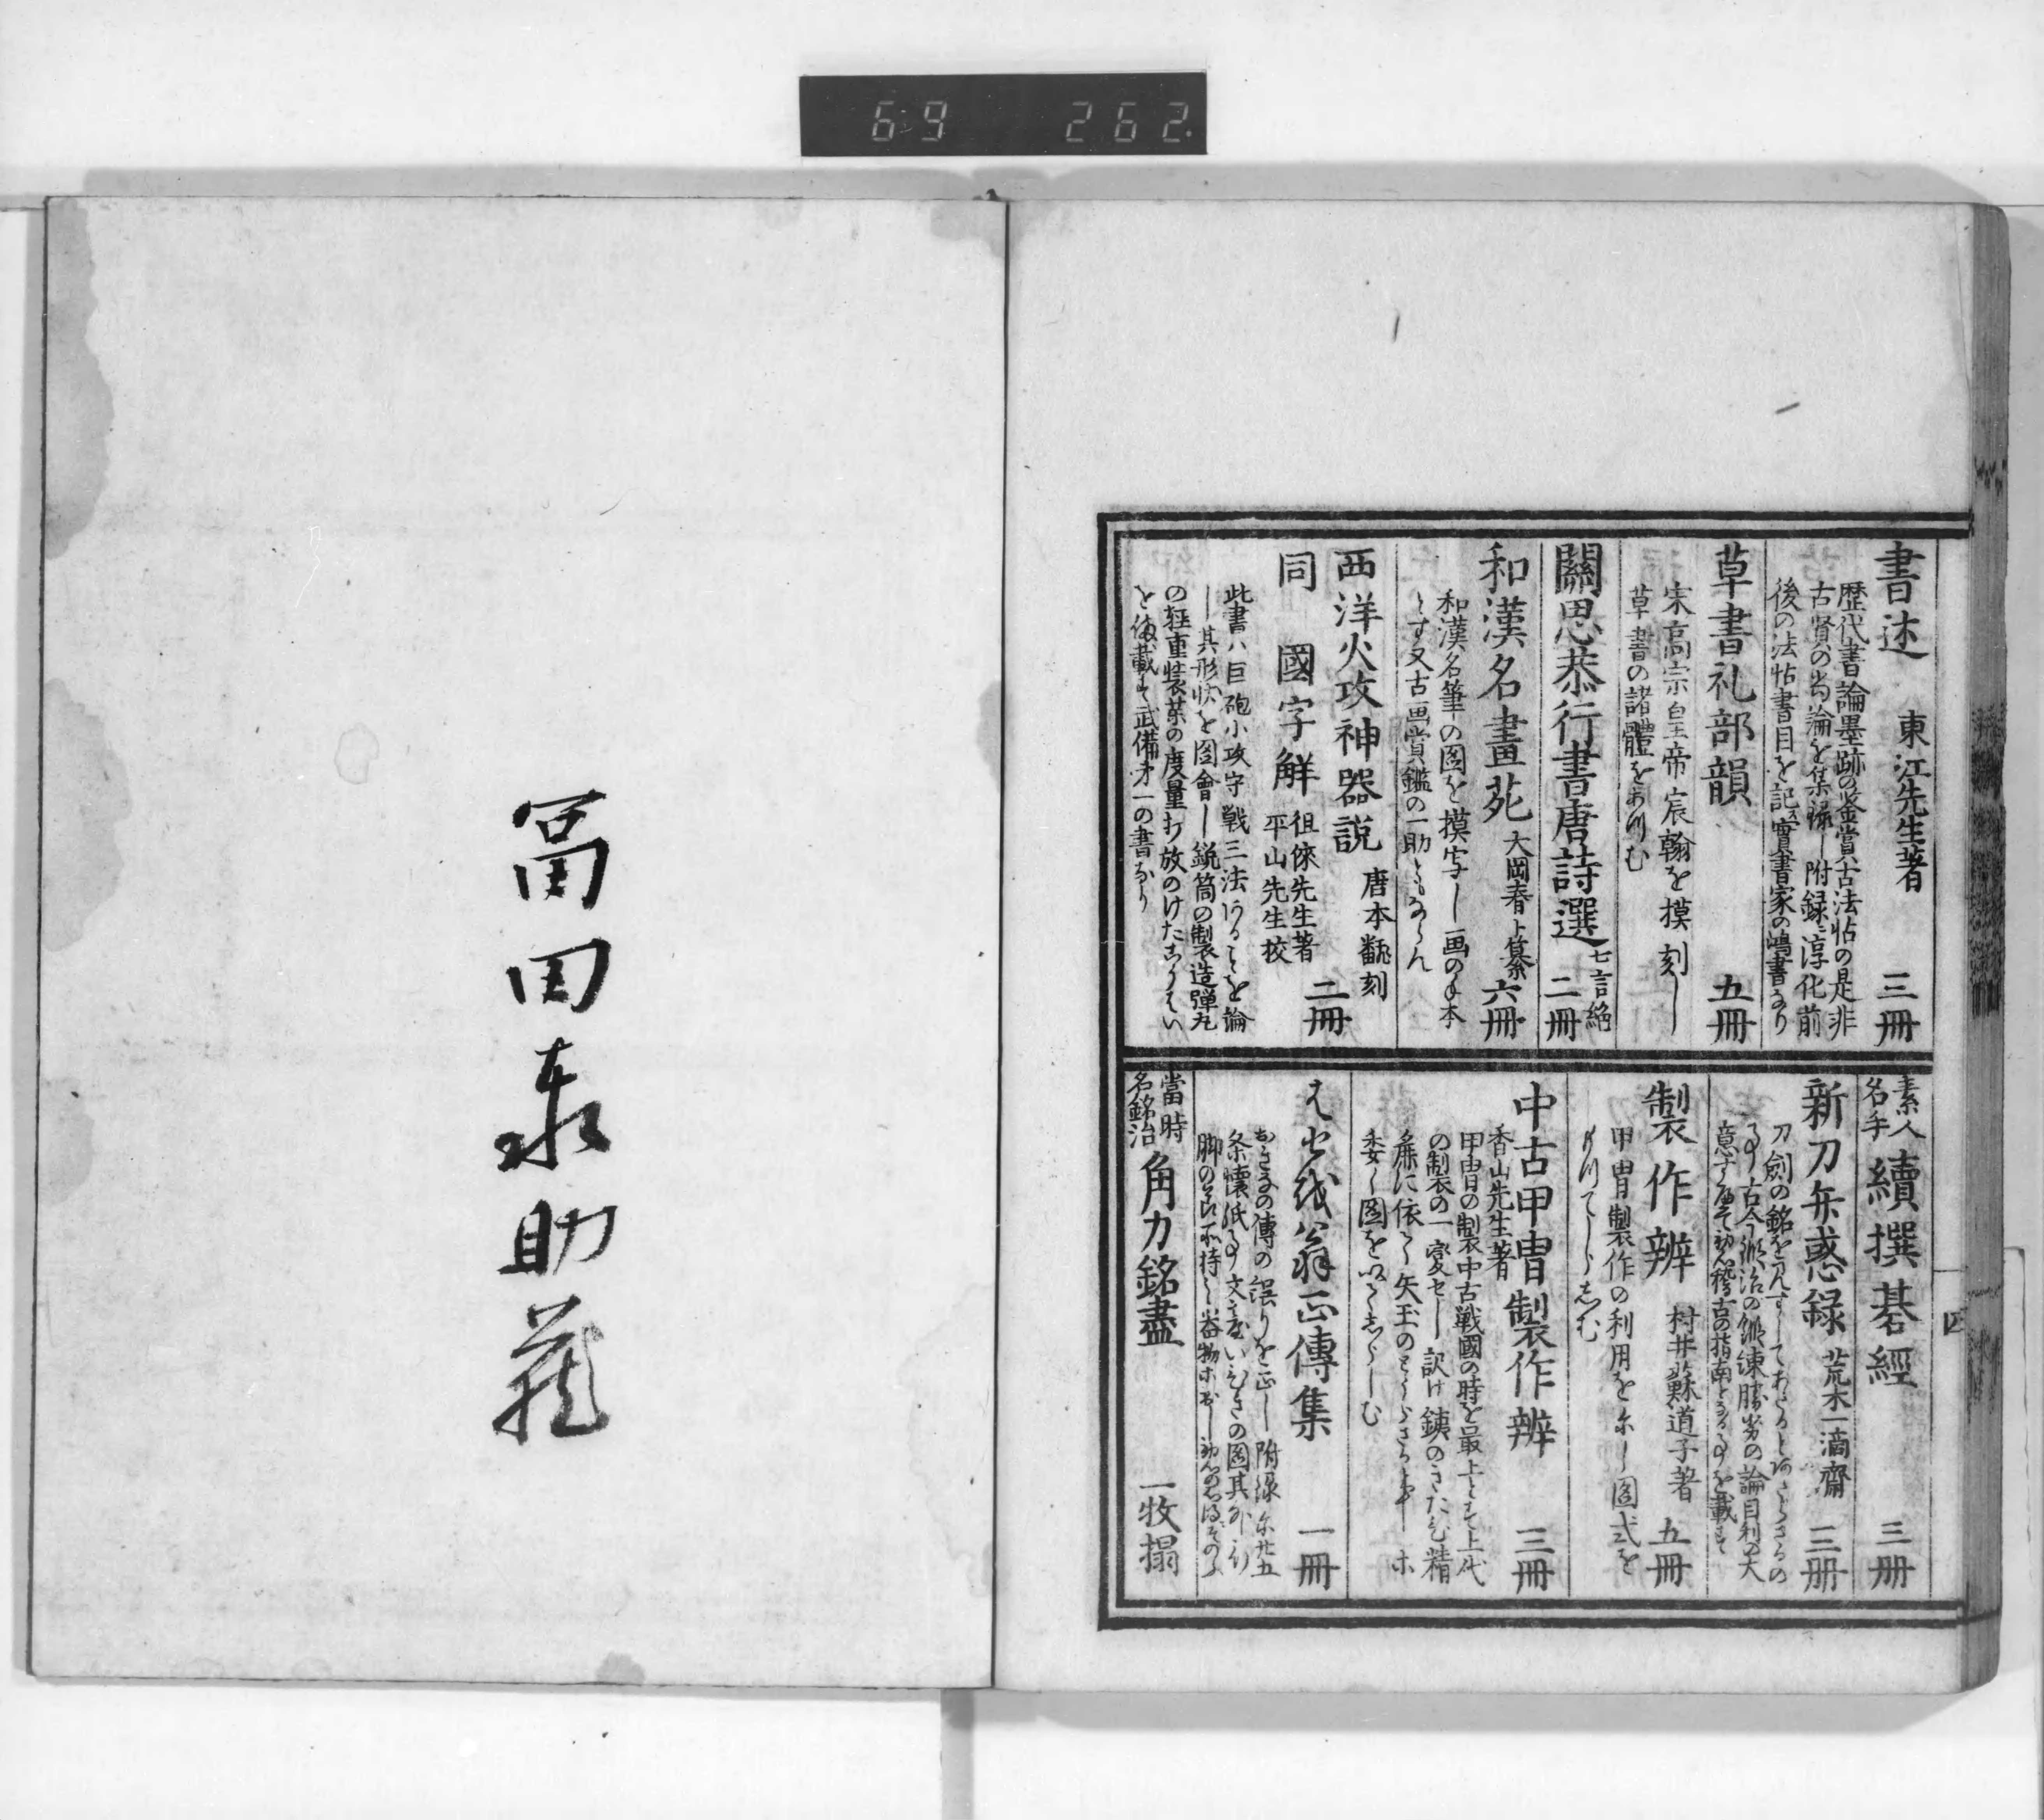 69 262.
書述 東江先生著 三冊
歴代書論墨跡の鑒賞古法帖の是非
古賢の尚論を集録し附録ニ淳化前
後の法帖書目を記ス實書家の鴻書なり
草書礼部韻 五冊
宋高宗皇帝宸翰を摸刻し
草書の諸體をあつむ
關思恭行書唐詩選 七言絶 二冊
和漢名畫苑 大岡春卜纂 六冊
和漢名筆の圖を摸写し画の手本
とす又古画賞鑑の一助ともならん
西洋火攻神器説 唐本飜刻
同 國字解 徂徠先生著 平山先生校 二冊
此書ハ巨砲小攻守戦三法あることを論
し其形状を圖會し銃筒の製造弾丸
の軽重装薬の度量打放のけたちうそい
を備載す武備才一の書なり
四
素人名手 續撰碁經 三册
新刀弁惑録 荒木一滴齋 三册
刀劍の銘を
古今鍛冶の鍛錬勝劣の論目利の大
意す 初心稽古の指南となる事を載す
製作辨 村井蘓道子著 五冊
甲冑製作の利用を 圖式を
もつてしらしむ
中古甲冑製作辨 三冊
香山先生著
甲冑の製中古戦國の時を最上とす上代
の製の一変せし訳け銕のきたひ精
麁に依て矢玉のとうらさる事ホ
委く圖を以てしらしむ
はせ越翁正傳集 一冊
おきなの傳の誤りを正し附録
条懐紙
脚の
當時名銘治 角力銘盡 一牧搨
冨田泰助蔵